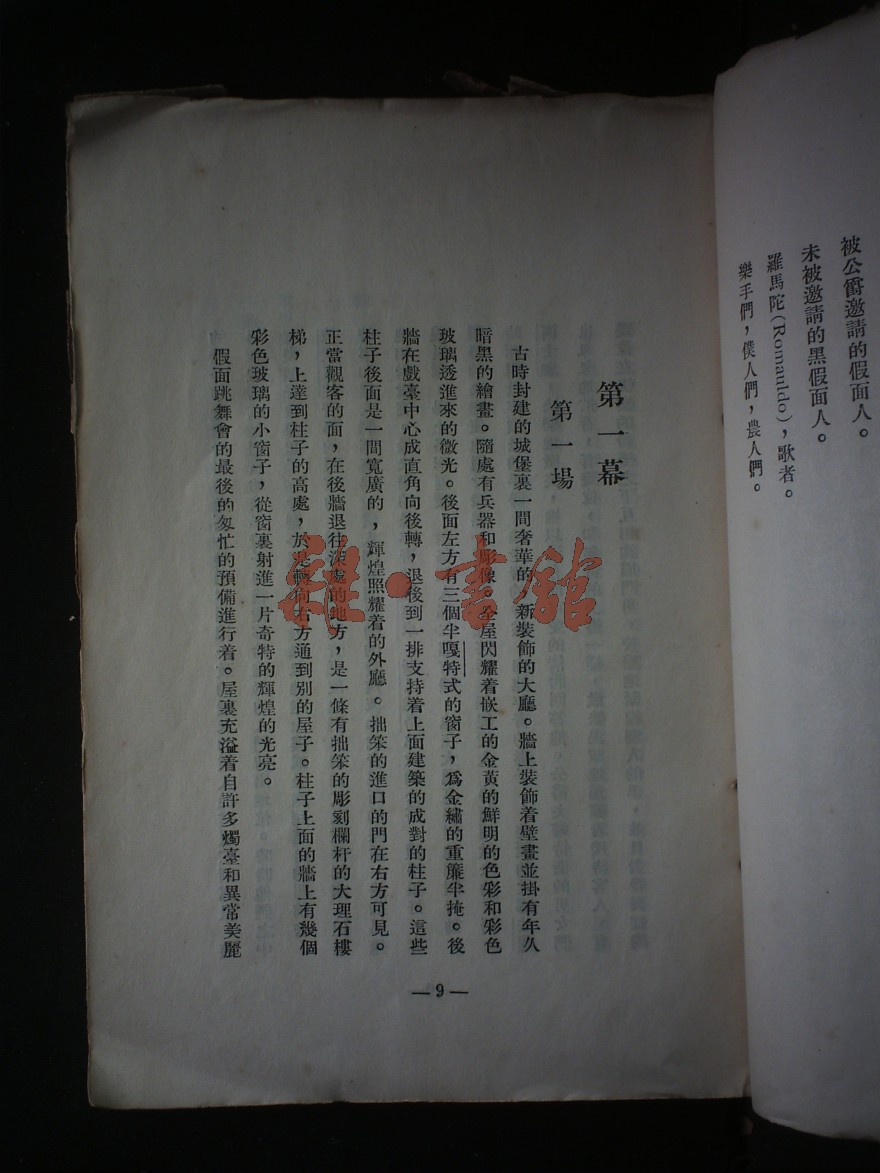 被公爵邀請的假面人。
未被邀請的黑假面人。
羅馬陀(Romauldo)，歌者。
樂手們，僕人們，農人們。
第一幕
第一場
古時封建的城堡裏一間奢華的，新裝飾的大廳。牆上裝飾着壁畫並掛有年久
暗黑的繪畫。隨處有兵器和彫像。全屋閃耀着嵌工的金黃的鮮明的色彩和彩色
玻璃透進來的微光。後面左方有三個半嘎特式的窗子，爲金繡的重簾半掩。後
牆在戲臺中心成直角向後轉，退後到一排支持着上面建築的成對的柱子。這些
柱子後面是一間寬廣的，輝煌照耀着的外廳。拙笨的進口的門在右方可見。
正當觀客的面，在後牆退往深處的地方，是一條有拙笨的彫刻欄杆的大理石樓
梯，上達到柱子的高處，於是轉向右方通到別的屋子。柱子上面的牆上有幾個
彩色玻璃的小窗子，從窗裏射進一片奇特的輝煌的光亮。
假面跳舞會的最後的匆忙的預備進行着。屋裏充溢着自許多燭臺和異常美麗
— 9 —
雜·書館